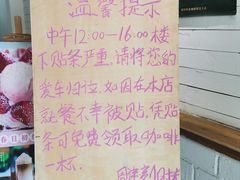 温馨提示
中午12:00—16:00楼
下贴条严重,请将您的
爱车归位,如因在本店
就餐不幸被贴,凭贴
条可免费领取咖啡
一杯.